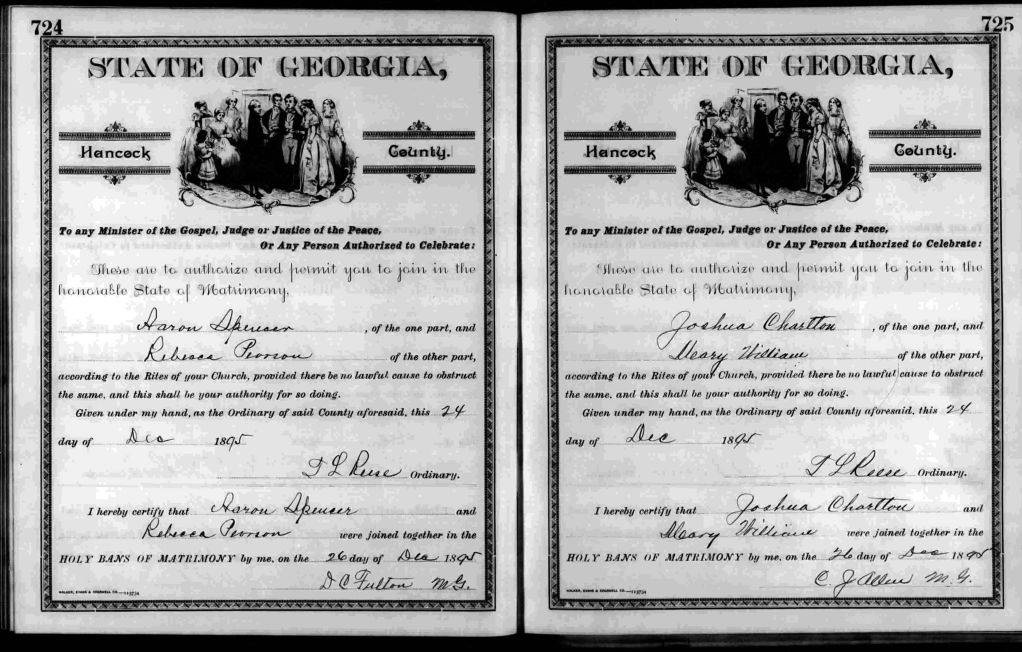 724
STATE OF GEORGIA,
Hancock County.
To any Minister of the Gospel, Judge or Justice of the Peace,
Or Any Person Authorized to Celebrate:
These are to authorize and permit you to join in the
honorable State of Matrimony,
Aaron Spencer, of the one part, and
Rebecca Pearson of the other part,
according to the Rites of your Church, provided there be no lawful cause to obstruct
the same, and this shall be your authority for so doing.
Given under my hand, as the Ordinary of said County aforesaid, this 24
day of Dec 1895
T L Reese Ordinary.
I hereby certify that Aaron Spencer and
Rebecca Pearson were joined together in the
HOLY BANS OF MATRIMONY by me, on the 26 day of Dec 1895
D C Fulton M.G.
WALKER, EVANS & COGSWELL CO.
725
STATE OF GEORGIA,
Hancock County.
To any Minister of the Gospel, Judge or Justice of the Peace,
Or Any Person Authorized to Celebrate:
These are to authorize and permit you to join in the
honorable State of Matrimony,
Joshua Charlton, of the one part, and
Meary William of the other part,
according to the Rites of your Church, provided there be no lawful cause to obstruct
the same, and this shall be your authority for so doing.
Given under my hand, as the Ordinary of said County aforesaid, this 24
day of Dec 1895
T L Reese Ordinary.
I hereby certify that Joshua Charlton and
Meary William were joined together in the
HOLY BANS OF MATRIMONY by me, on the 26 day of Dec 1895
C. J Allen M.G.
WALKER, EVANS & COGSWELL CO.